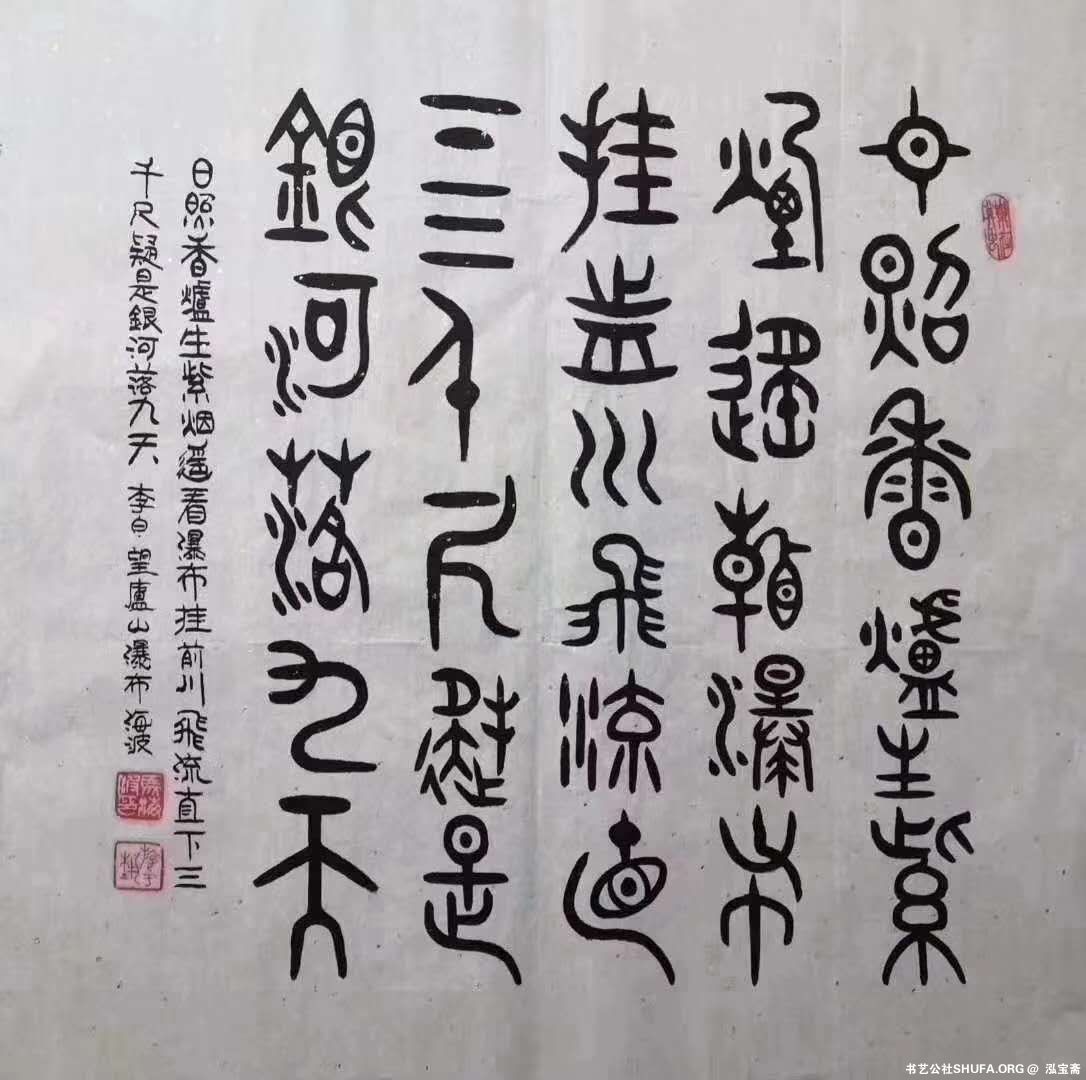 日照香爐生紫
煙遥看瀑布
挂前川飛流直
下三千尺疑是
銀河落九天
日照香爐生紫烟遥看瀑布挂前川飛流直下三
千尺疑是銀河落九天 李白望廬山瀑布 海波
书艺公社SHUFA.ORG @ 泓宝斋